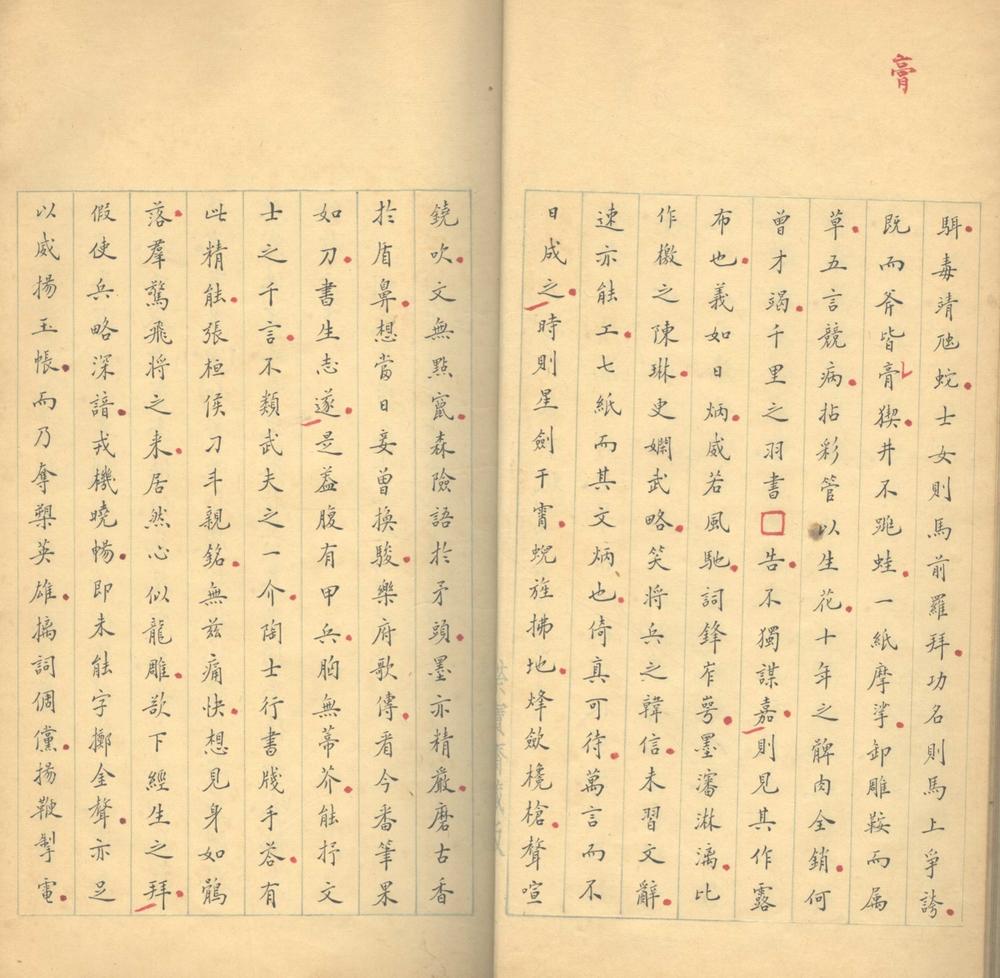 膏
駬毒靖虺蛇士女則馬前羅拜功名則馬上爭誇
既而斧皆膏猰井不跳蛙一紙摩挲卸雕鞍而属
草五言競病拈彩管以生花十年之髀肉全銷何
曾才竭千里之羽書□告不獨謀嘉則見其作露
布也義如日炳威若風馳詞鋒岝崿墨瀋淋漓比
作檄之陳琳更嫻武略笑将兵之韓信未習文辭
速亦能工七紙而其文炳也倚真可待萬言而不
日成之時則星劍干霄蜺旌拂地烽斂欃槍聲喧
鐃吹文無點竄森險語扵矛頭墨亦精嚴磨古香
扵盾鼻想當日妾曾換駿樂府歌傳看今番筆果
如刀書生志遂是葢腹有甲兵胸無蒂芥能抒文
士之千言不類武夫之一介陶士行書牋手荅有
此精能張桓侯刀斗親銘無兹痛快想見身如鶻
落羣驚飛將之来居然心似龍雕欲下經生之拜
假使兵略深諳戎機曉暢即未能字擲金聲亦足
以威揚玉帳而乃奪槊英雄摛詞倜儻揚鞭掣電